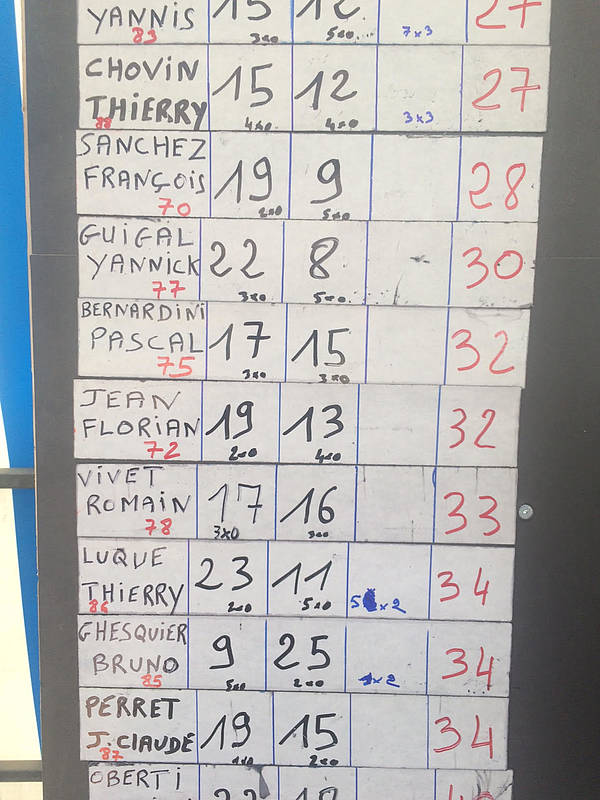 YANNIS 15 12 27
83 3x0 5x0 7x3
CHOVIN 15 12 27
THIERRY
88 4x0 4x0 3x3
SANCHEZ 19 9 28
FRANÇOIS
70 2x0 5x0
GUIGAL 22 8 30
YANNICK
77 3x0 5x0
BERNARDINI 17 15 32
PASCAL
75 3x0 3x0
JEAN 19 13 32
FLORIAN
72 2x0 4x0
VIVET 17 16 33
ROMAIN
78 3x0 3x0
LUQUE 23 11 34
THIERRY
86 2x0 5x0 5 x2
GHESQUIER 9 25 34
BRUNO
85 5x0 2x0 1x2
PERRET 19 15 34
J.CLAUDE
87 2x0
OBERTI